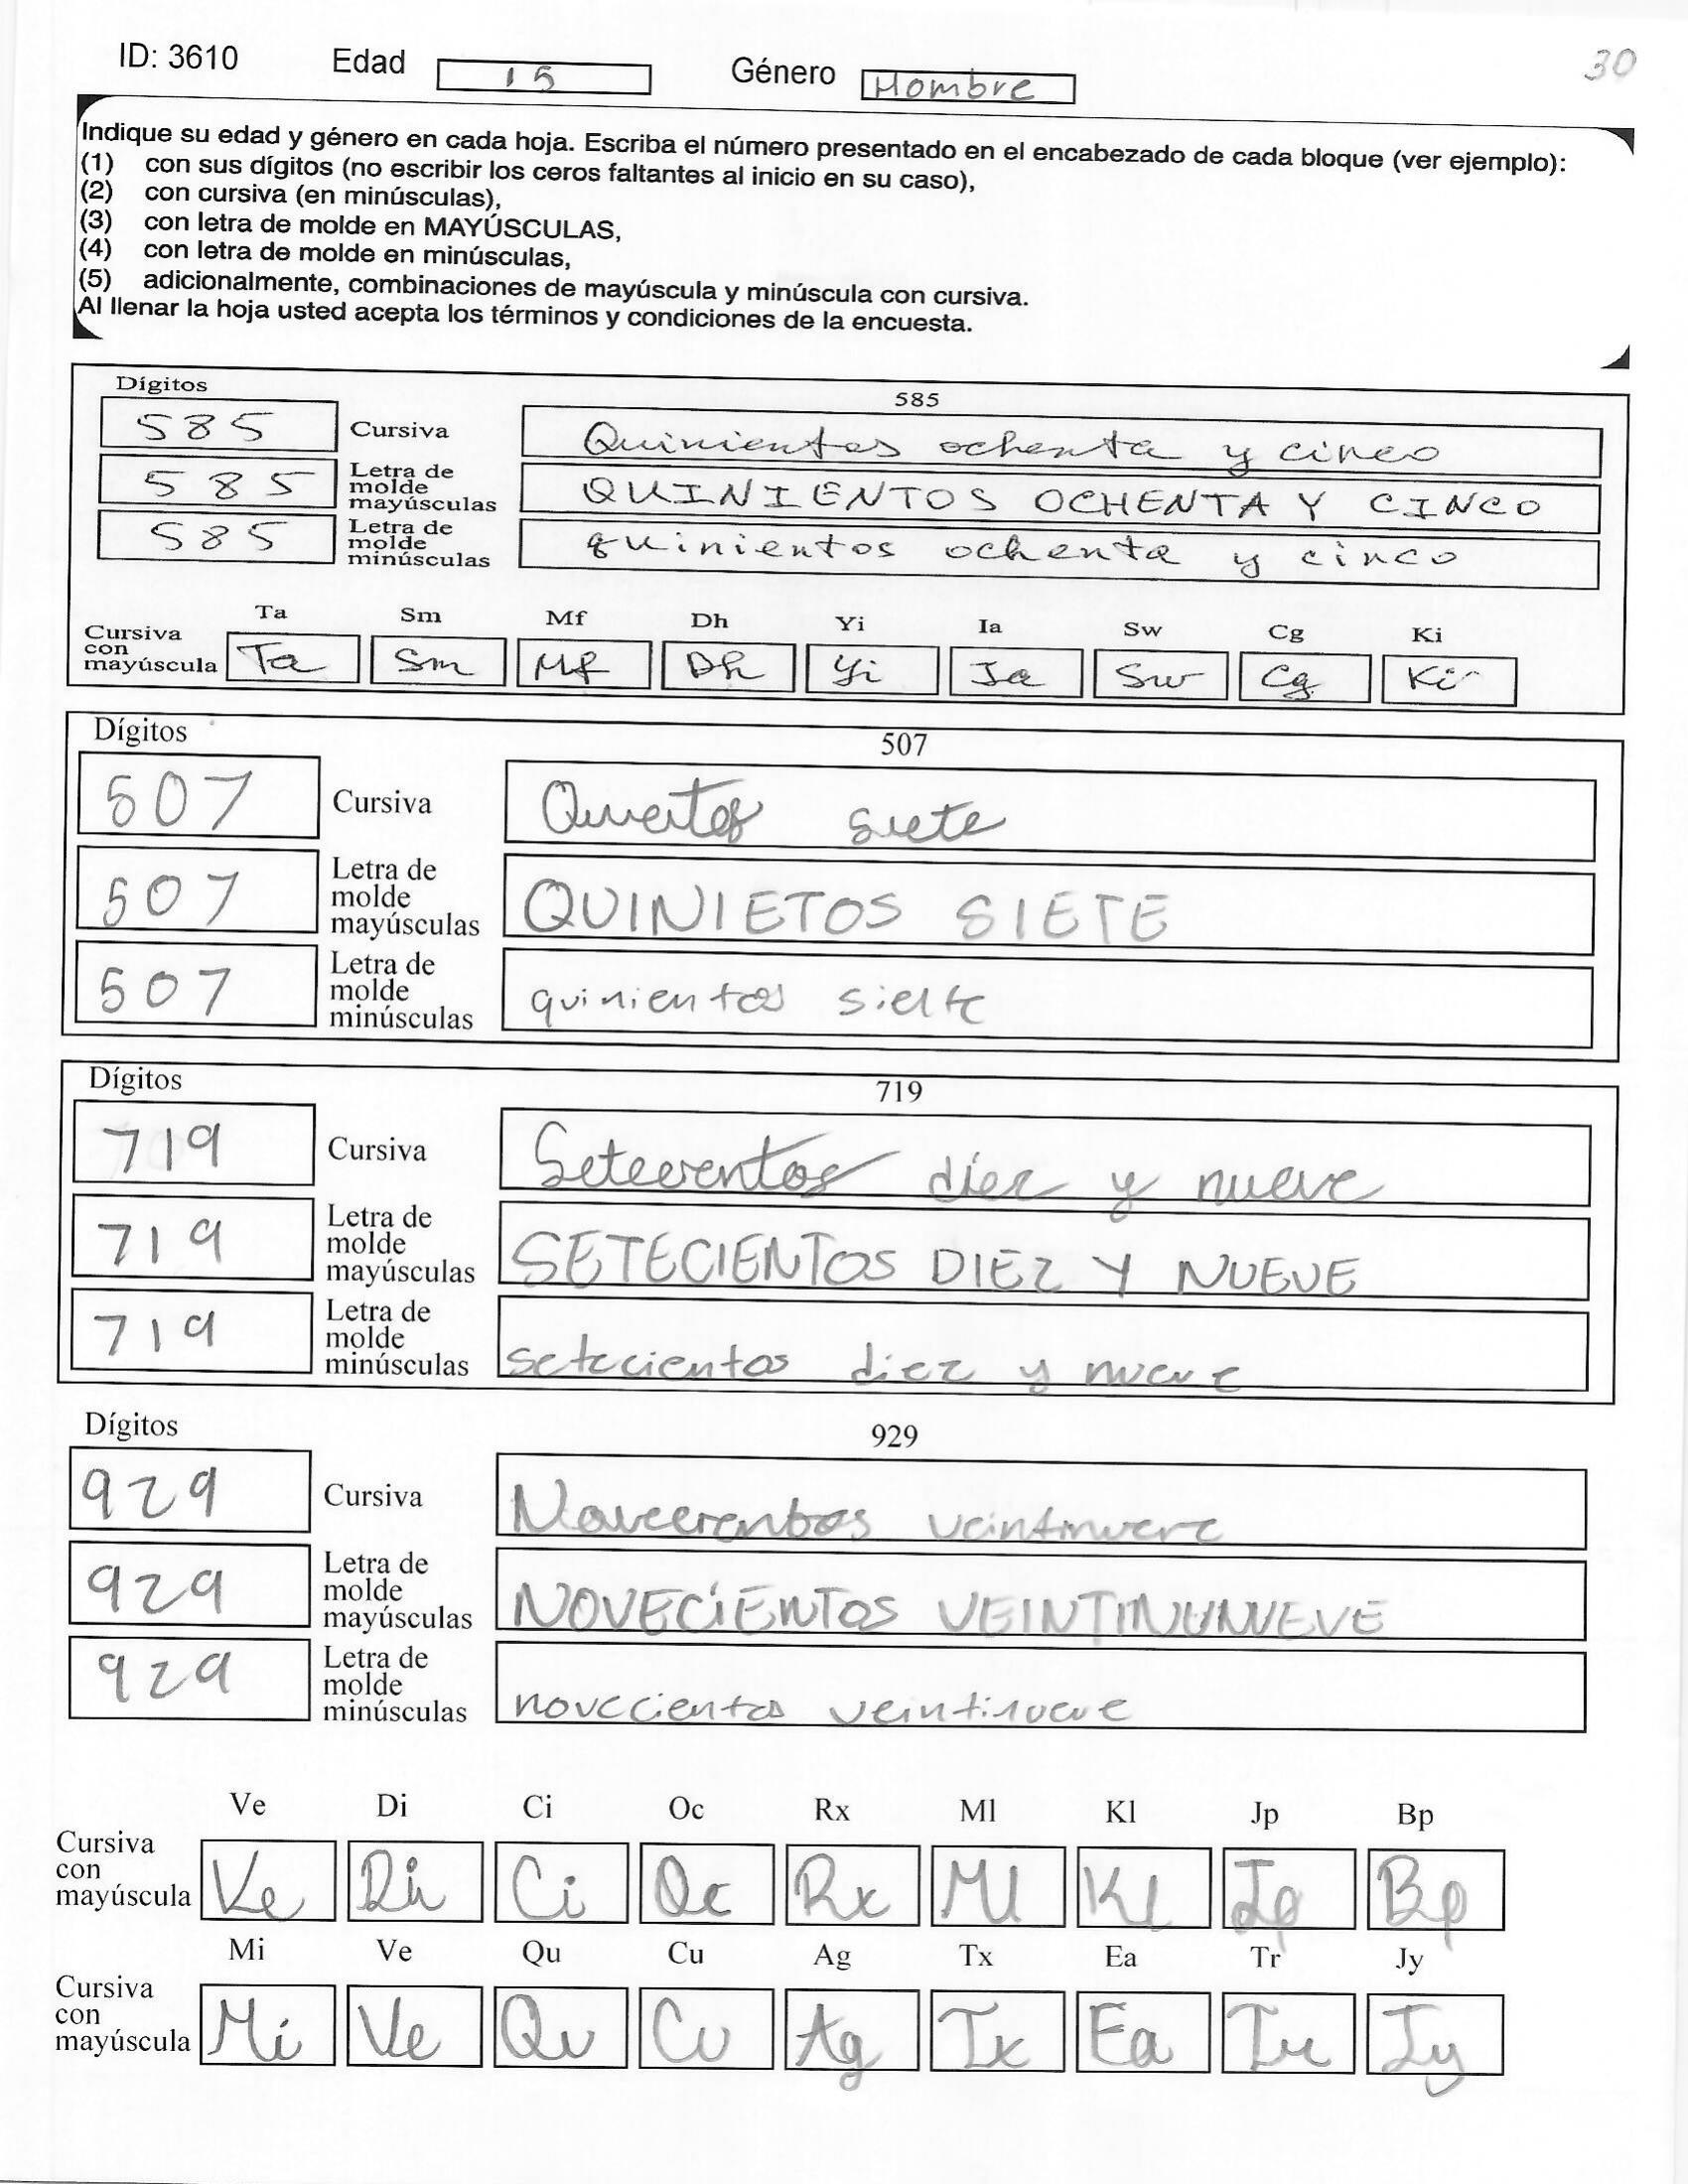 ID: 3610 Edad 15 Género Hombre 30
Indique su edad y género en cada hoja. Escriba el número presentado en el encabezado de cada bloque (ver ejemplo):
(1) con sus dígitos (no escribir los ceros faltantes al inicio en su caso),
(2) con cursiva (en minúsculas),
(3) con letra de molde en MAYÚSCULAS,
(4) con letra de molde en minúsculas,
(5) adicionalmente, combinaciones de mayúscula y minúscula con cursiva.
Al llenar la hoja usted acepta los términos y condiciones de la encuesta.
Dígitos 585
585 Cursiva Quinientos ochenta y cinco
585 Letra de molde mayúsculas QUINIENTOS OCHENTA Y CINCO
585 Letra de molde minúsculas quinientos ochenta y cinco
Ta Sm Mf Dh Yi Ia Sw Cg Ki
Cursiva con mayúscula Ta Sm Mf Dh Yi Ia Sw Cg Ki
Dígitos 507
507 Cursiva siete
507 Letra de molde mayúsculas QUINIETOS SIETE
507 Letra de molde minúsculas quinientos
719
Dígitos
719 Cursiva Setecientos diez y nueve
719 Letra de molde mayúsculas SETECIENTOS DIEZ Y NUEVE
719 Letra de molde minúsculas setecientos diez y nueve
Dígitos 929
929 Cursiva Novecientos
929 Letra de molde mayúsculas NOVECIENTOS
929 Letra de molde minúsculas novecientos veintinueve
Ve Di Ci Oc Rx Ml Kl Jp Bp
Cursiva con mayúscula Ve Di Ci Oc Rx Ml Kl Jp Bp
Mi Ve Qu Cu Ag Tx Ea Tr Jy
Cursiva con mayúscula Mi Ve Qu Cu Ag Tx Ea Tr Jy